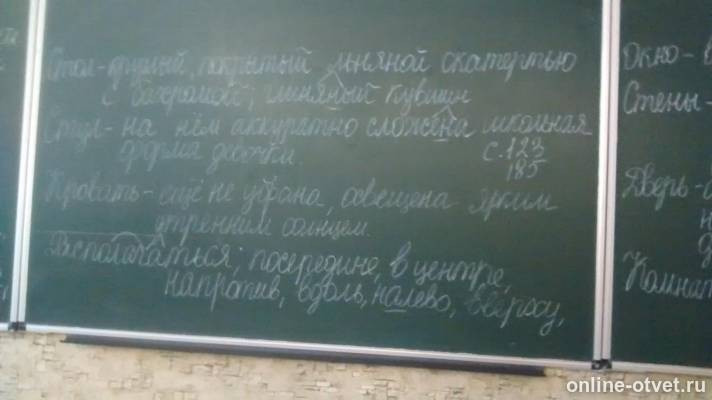 Стол - круглый, покрытый льняной скатертью
с бахромой; глиняный кувшин
Стул - на нём аккуратно сложена школьная
форма девочки.
с.123
185
Кровать - ещё не убрана, освещена ярким
утренним солнцем.
Располагаться, посередине, в центре,
напротив, вдоль, налево, вверху,
Окно -
Стены -
Дверь -
online-otvet.ru